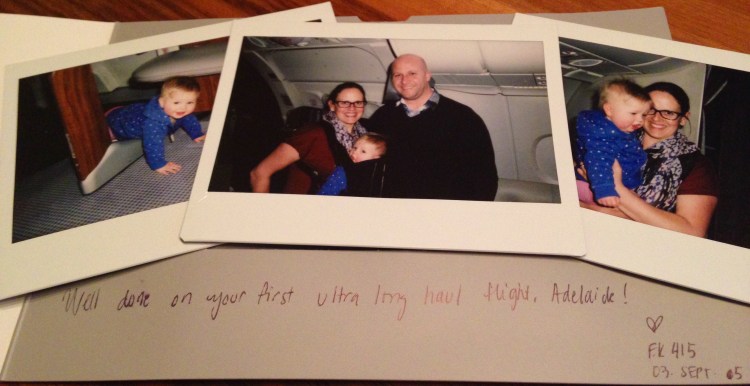 Well done on your first ultra long haul flight, Adelaide!
♡
EK 415
03. SEPT. 05